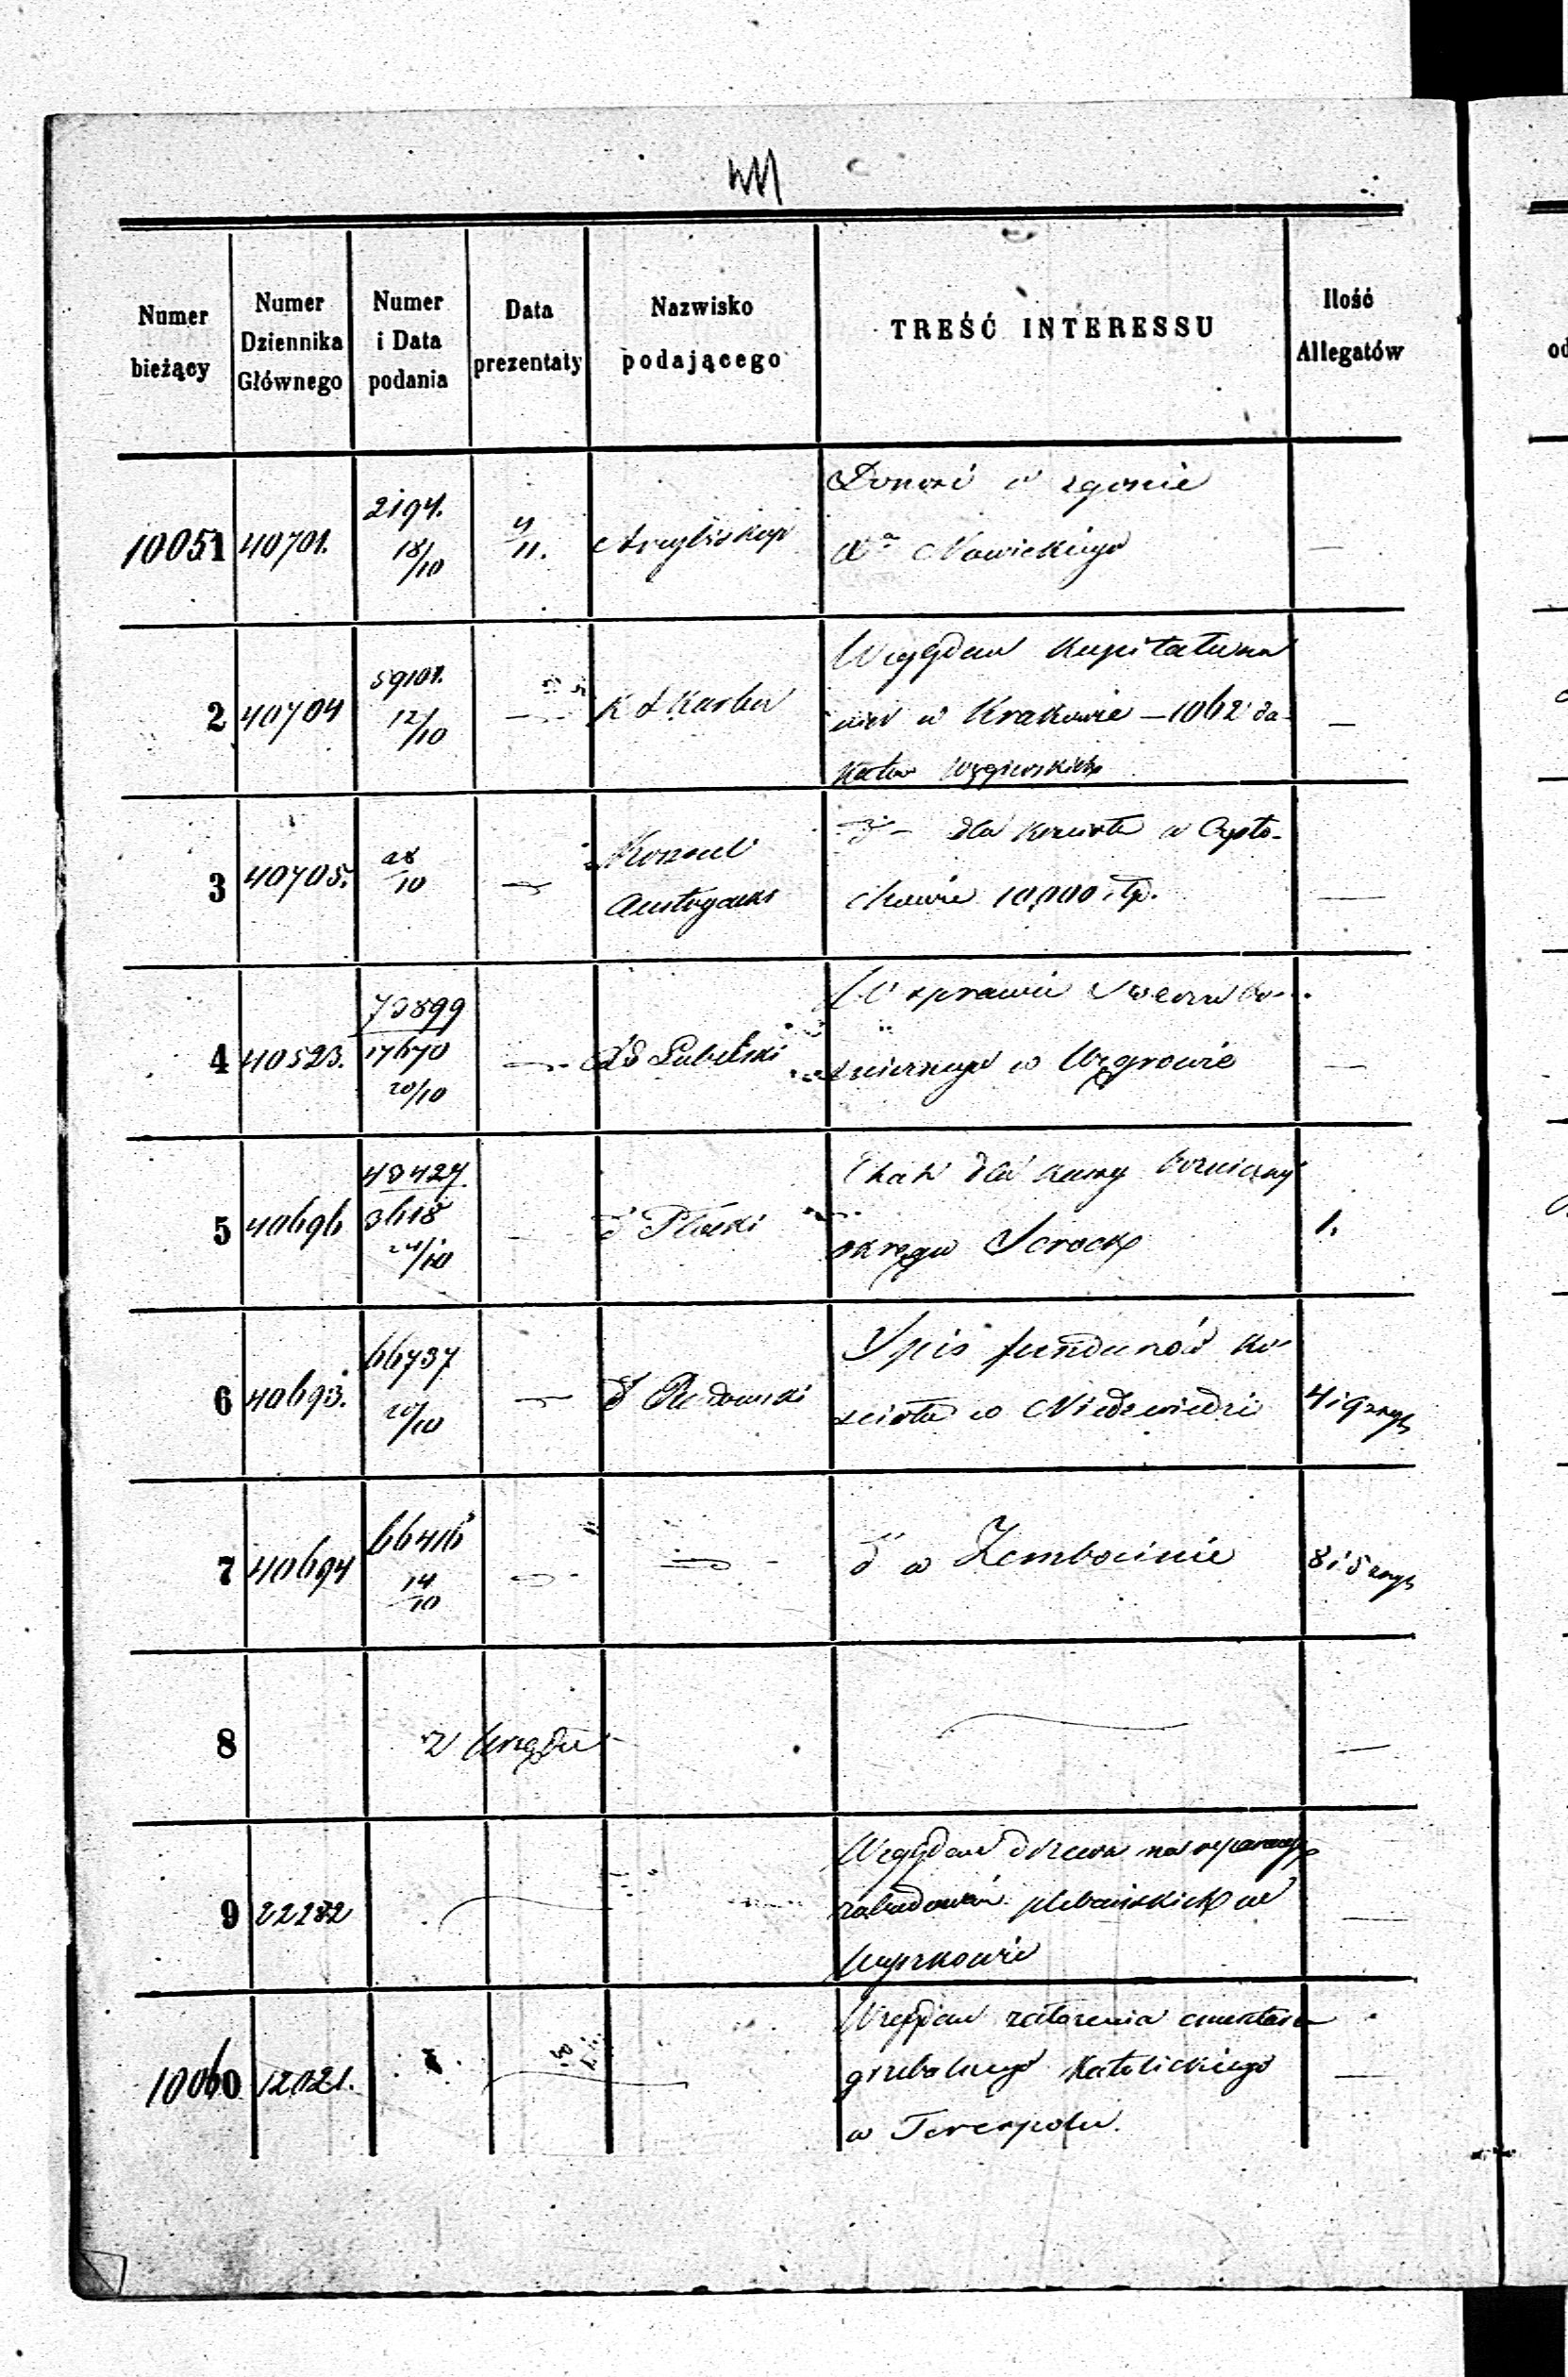 Numer bieżący
Numer Dziennika Głównego
Numer i Data podania
Data prezentaty
Nazwisko podającego
TREŚĆ INTERESSU
Ilość Allegatów
10051 40701. 2194. 18/10 4/11. Arcybiskup
Donosi o zgonie
Xa Nowickiego
—
2 40704 59101. 12/10 — K S Karbu
Względem kapitału na
w Krakowie — 1062 du-
katów Węgierskich
—
3 40705. 28/10 — Konsul
Austryacki
dla kościoła w Często-
chowie 10,000 złp.
—
4 40523. 73899
17670
20/10 — Lubelski
W sprawie
w Węgrowie
—
5 40696 43427
3618
24/10 Płocki
dla kassy
okręgu Serock
1.
6 40693. 66737
20/10 — Radomski
Spis funduszów ko-
ścioła w Niedzwiedzi
4 i 9
7 40694 66416
14/10 — —
d° w Zembocinie
8 i 5
8 z Urzędu —
9 22282
Względem drzewa na reparacyę
zabudowań plebańskich w
—
10060 12021.
Względem założenia cmentarza
grzebalnego Katolickiego
w Terespolu.
—